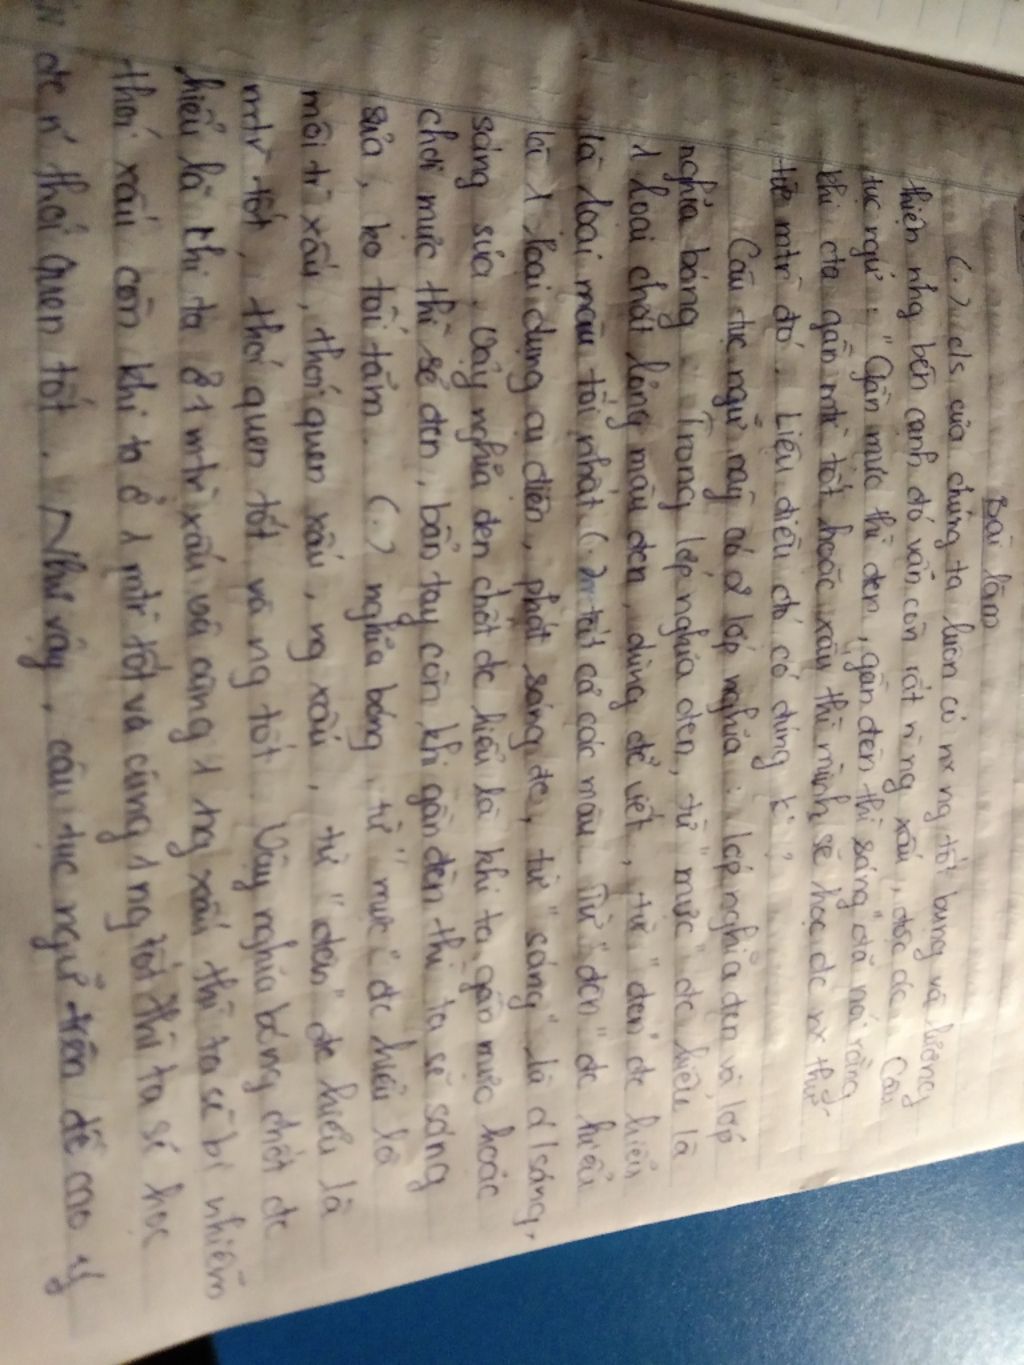 Bài làm
(.) c/s của chúng ta luôn có nx ng tốt bụng và lương
thiện nhg bên cạnh đó vẫn còn rất n` ng xấu, độc ác. Câu
tục ngữ: "Gần mực thì đen, gần đèn thì sáng" đã nói rằng
khi cta gần mtr tốt hoặc xấu thì mình sẽ học đc nx thứ
từ mtr đó. Liệu điều đó có đúng k?
Câu tục ngữ này có 2 lớp nghĩa: lớp nghĩa đen và lớp
nghĩa bóng. Trong lớp nghĩa đen, từ "mực" đc hiểu là
1 loại chất lỏng màu đen, dùng để viết, từ "đen" đc hiểu
là loại màu tối nhất (.) tất cả các màu. Từ "đèn" đc hiểu
là 1 loại dụng cụ điện, phát sáng đc, từ "sáng" là a/sáng,
sáng sủa. Vậy nghĩa đen chốt đc hiểu là khi ta gần mực hoặc
chơi mực thì sẽ đen, bẩn tay còn khi gần đèn thì ta sẽ sáng
sủa, ko tối tăm. (.) nghĩa bóng, từ "mực" đc hiểu là
môi tr xấu, thói quen xấu, ng xấu, từ "đèn" đc hiểu là
mtr tốt, thói quen tốt và ng tốt. Vậy nghĩa bóng chốt đc
hiểu là khi ta ở 1 mtr xấu và cùng 1 ng xấu thì ta sẽ bị nhiễm
thói xấu còn khi ta ở 1 mtr tốt và cùng 1 ng tốt thì ta sẽ học
đc n` thói quen tốt. Như vậy, câu tục ngữ trên đề cao ý